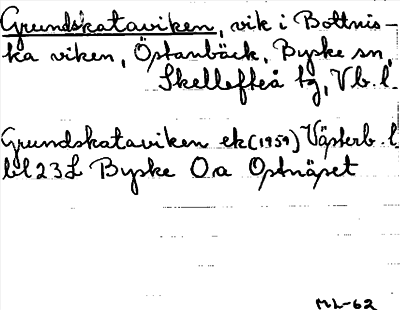 Grundskataviken, vik i Bottnis-
ka viken, Östanbäck, Byske sn,
Skellefteå tg, Vb. l.
Grundskataviken ek (1959) Västerb. l.
bl 23 L Byske Oa Ostnäset
ML-62